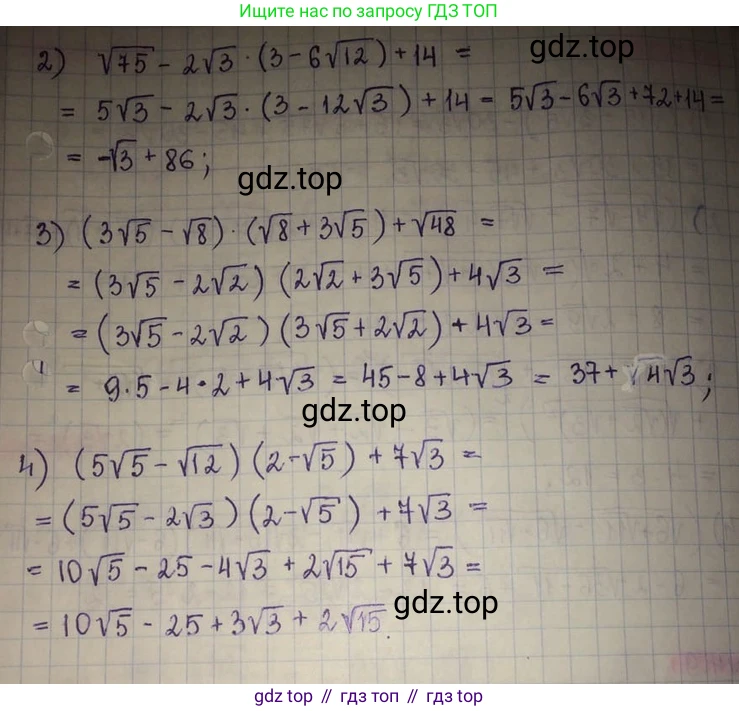 Ищите нас по запросу ГДЗ ТОП
2) √75 - 2√3 · (3 - 6√12) + 14 =
gdz.top
= 5√3 - 2√3 · (3 - 12√3) + 14 = 5√3 - 6√3 + 72 + 14 =
= -√3 + 86;
gdz.top
3) (3√5 - √8) · (√8 + 3√5) + √48 =
= (3√5 - 2√2) (2√2 + 3√5) + 4√3 =
= (3√5 - 2√2) (3√5 + 2√2) + 4√3 =
= 9·5 - 4·2 + 4√3 = 45 - 8 + 4√3 = 37 + √4√3;
gdz.top
4) (5√5 - √12) (2 - √5) + 7√3 =
= (5√5 - 2√3) (2 - √5) + 7√3 =
= 10√5 - 25 - 4√3 + 2√15 + 7√3 =
gdz.top
= 10√5 - 25 + 3√3 + 2√15.
gdz топ // гдз топ // gdz.top